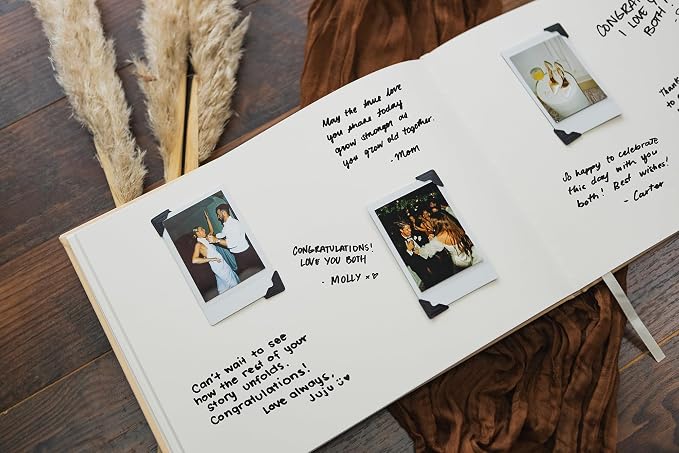 May the true love
you share today
grow stronger as
you grow old together.
- Mom
CONGRATULATIONS!
LOVE YOU BOTH
- MOLLY x♡
Can't wait to see
how the rest of your
story unfolds.
Congratulations!
Love always,
Juju ♥
CONGRATU
I LOVE Y
BOTH!
So happy to celebrate
this day with you
both! Best wishes!
- Carter
Thank
to